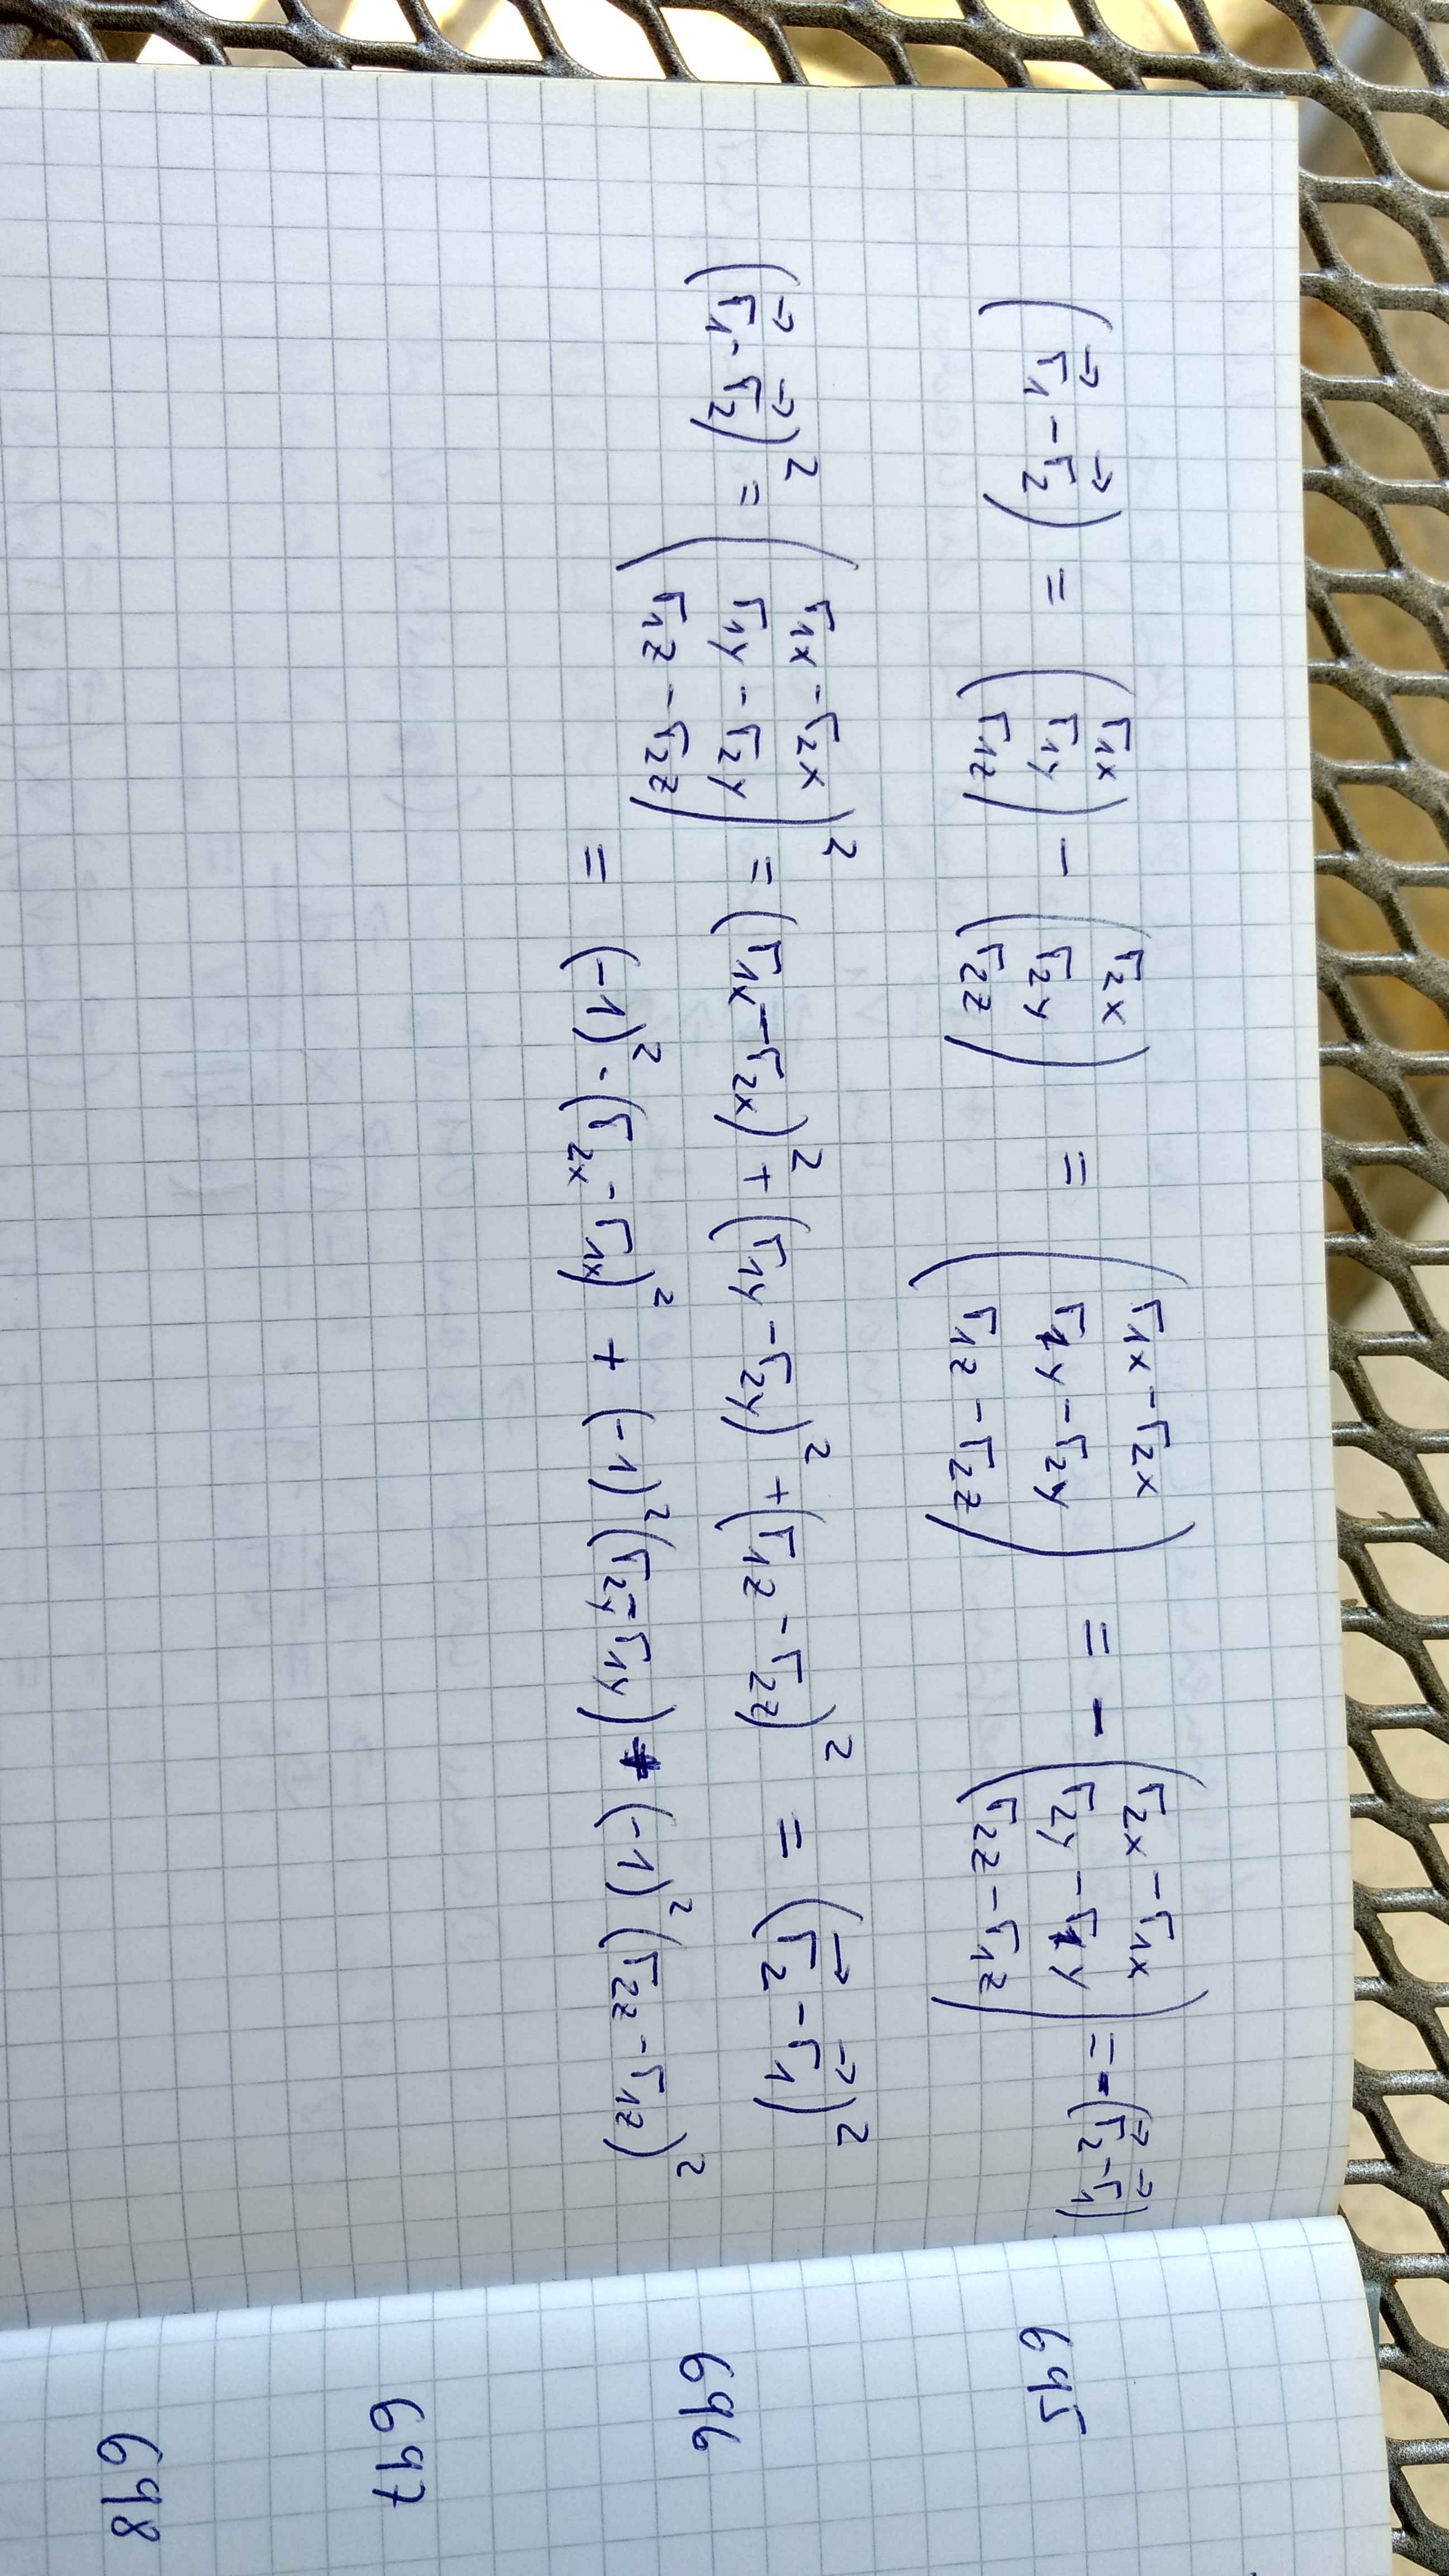 (r⃗₁ - r⃗₂) = (r₁ₓ r₁y r₁z) - (r₂ₓ r₂y r₂z) = (r₁ₓ - r₂ₓ r₁y - r₂y r₁z - r₂z) = - (r₂ₓ - r₁ₓ r₂y - r₁y r₂z - r₁z) = -(r⃗₂ - r⃗₁)
(r⃗₁ - r⃗₂)² = (r₁ₓ - r₂ₓ r₁y - r₂y r₁z - r₂z)² = (r₁ₓ - r₂ₓ)² + (r₁y - r₂y)² + (r₁z - r₂z)² = (r⃗₂ - r⃗₁)²
= (-1)² · (r₂ₓ - r₁ₓ)² + (-1)² (r₂y - r₁y) + (-1)² (r₂z - r₁z)²
695
696
697
698